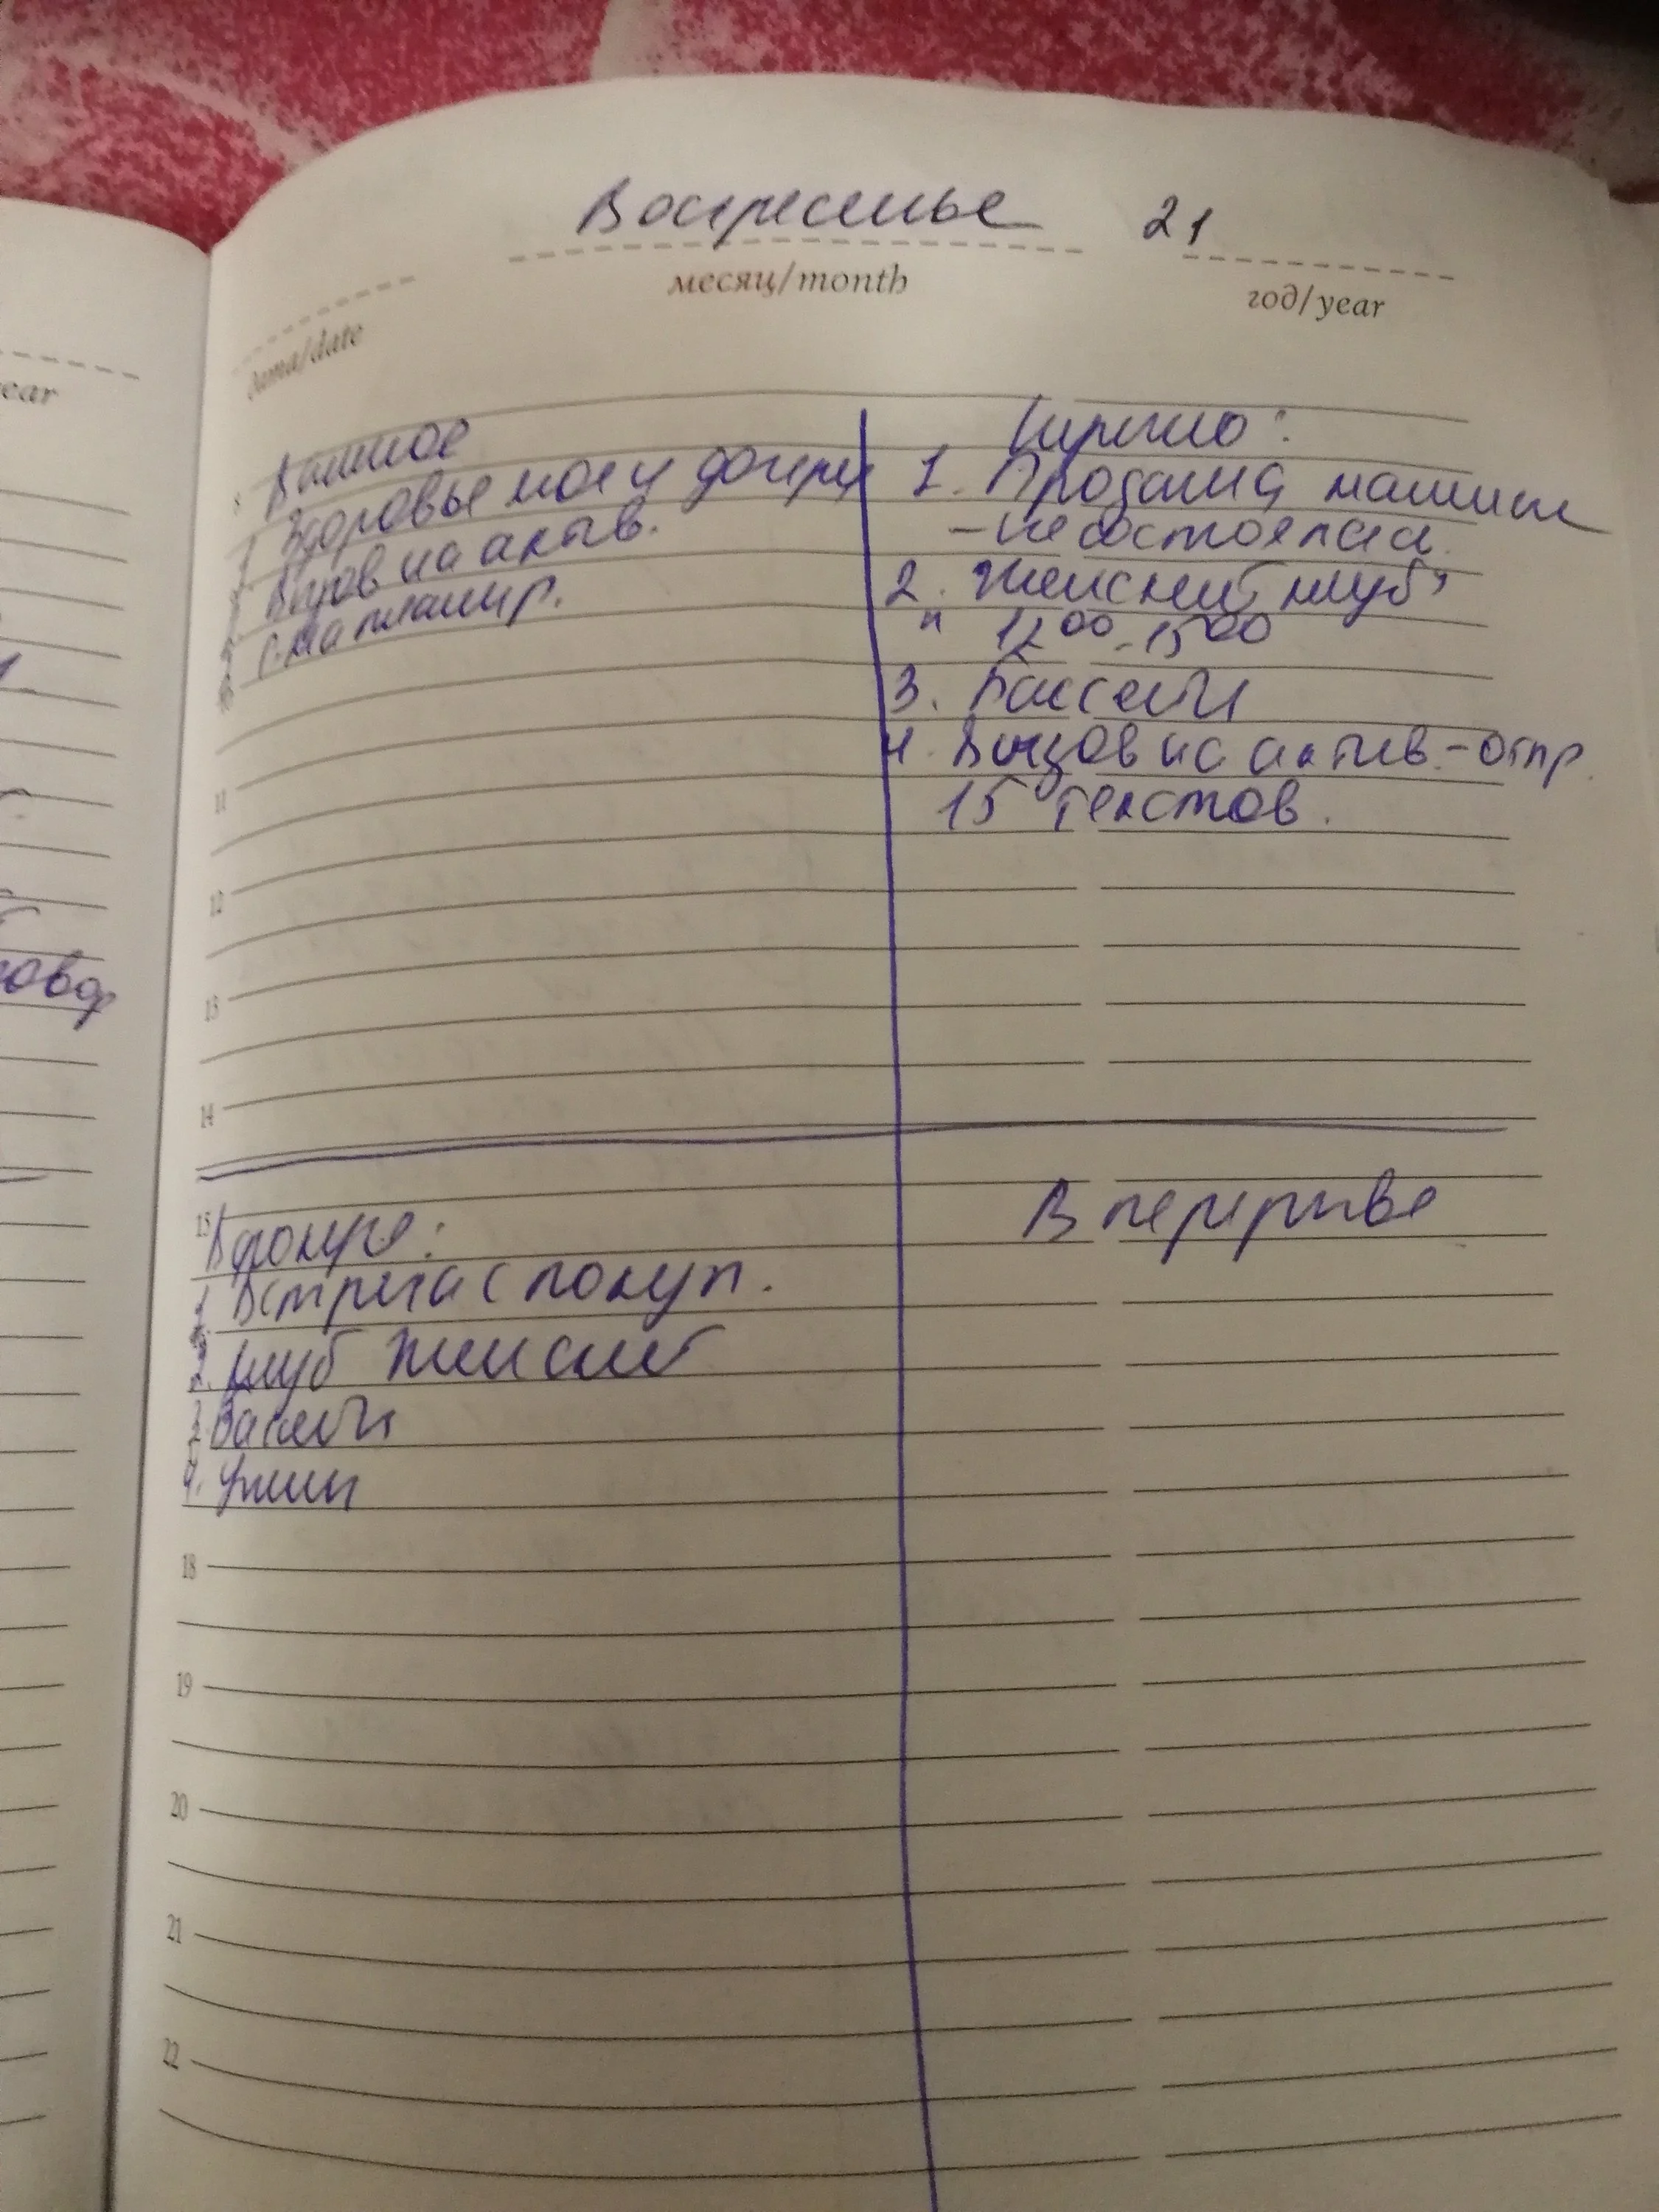 Воскресенье 21
дата/date месяц/month год/year
ear
Важное
1 Здоровье мое и дочери
Вызов на актив.
планир.
Срочно:
1. Продажа машины
- не состоялась.
2. Женский клуб
12 00 - 15 00
3. Бассейн
4. Вызов на актив. - отпр.
15 текстов.
8
11
12
13
14
15
В фокусе:
1. Встреча с покуп.
2. Клуб женский
3. Бассейн
4. Ужин
18
19
20
21
22
В перерыве
говор